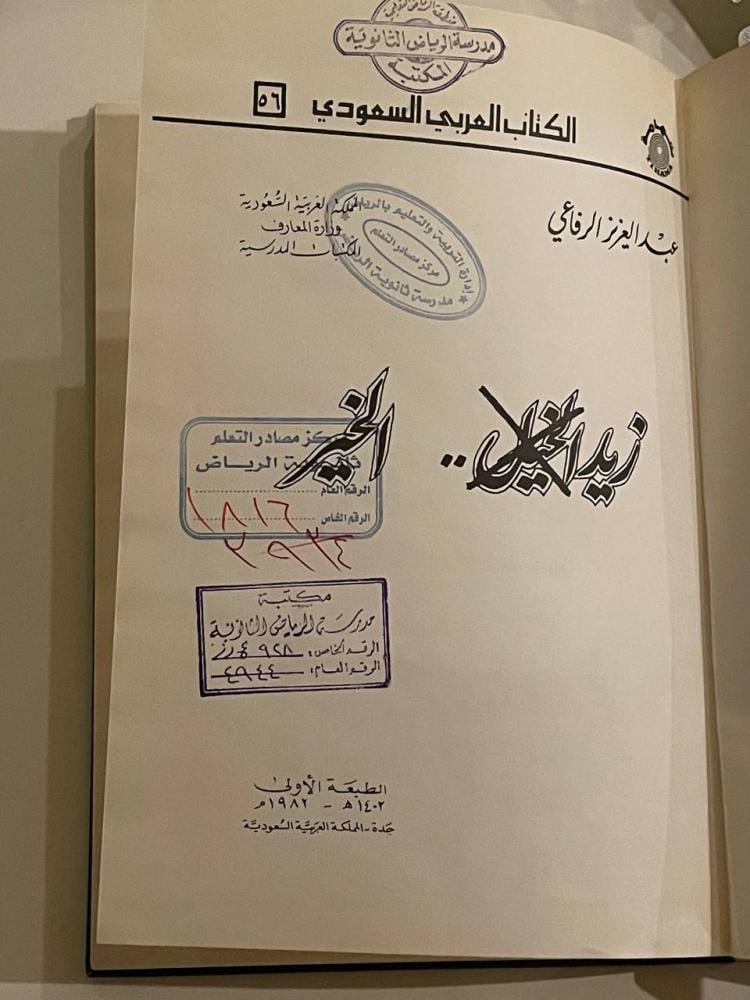 مدرسة الرياض الثانوية
المكتبة
الكتاب العربي السعودي ٥٦
عبد العزيز الرفاعي
المملكة العربية السعودية
وزارة المعارف
المكتبات المدرسية
إدارة التربية والتعليم بالرياض
مركز مصادر التعلم
مدرسة ثانوية الرياض
زيد الخيل .. الخير
مركز مصادر التعلم
ثانوية الرياض
الرقم العام
١٨١٦
الرقم الخاص
٢٩٣٤
مكتبة
مدرسة الرياض الثانوية
الرقم الخاص: ٩٢٨
الرقم العام: ٤٩٤٤
الطبعة الأولى
١٤٠٢ هـ - ١٩٨٢ م
جدة - المملكة العربية السعودية